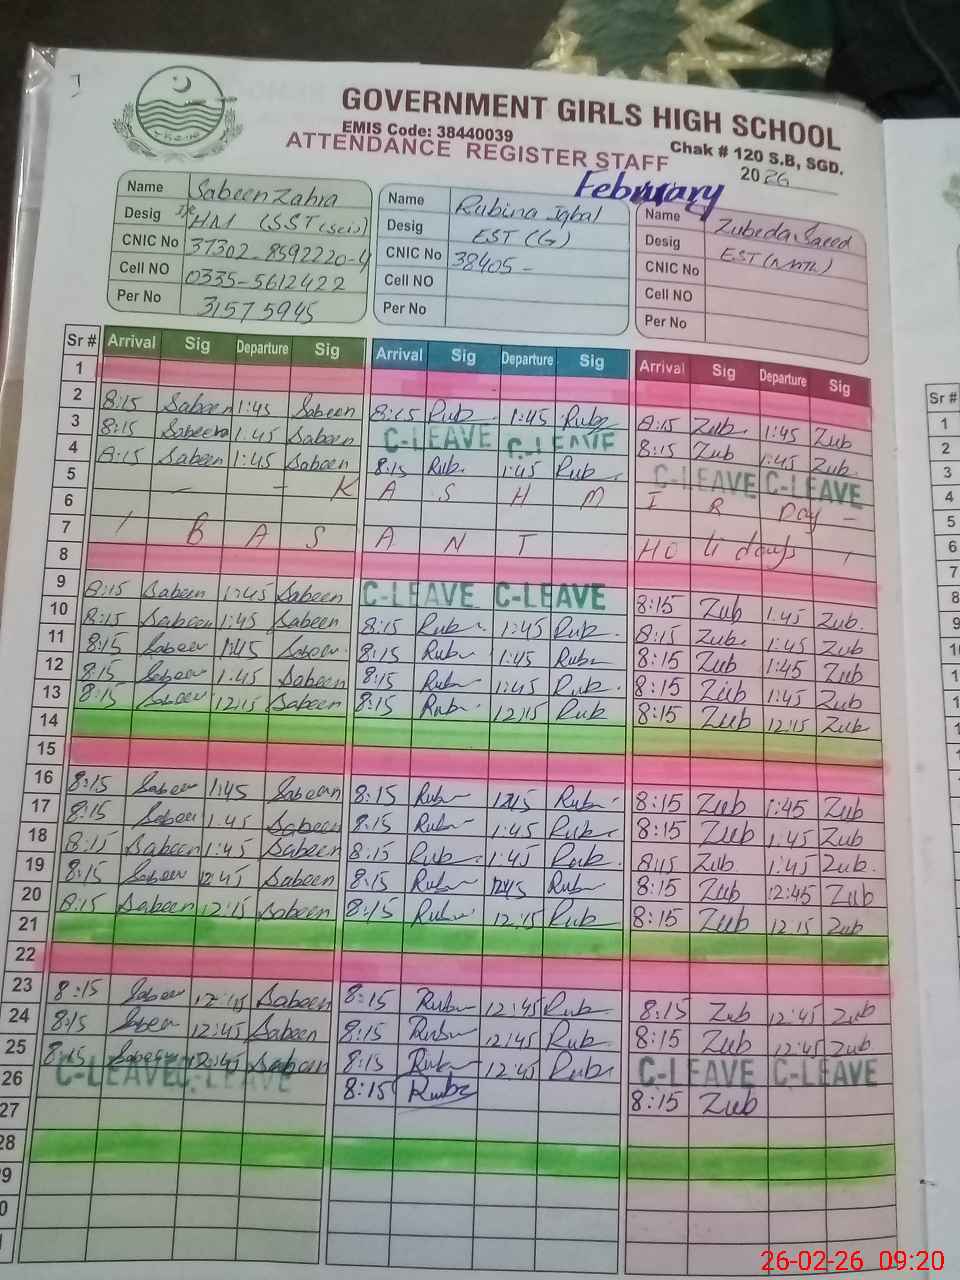 GOVERNMENT GIRLS HIGH SCHOOL
EMIS Code: 38440039
Chak # 120 S.B, SGD.
ATTENDANCE REGISTER STAFF
2026
February
Name Sabeen Zahra
Desig I/c HM (SST (sci))
CNIC No 37302-8592220-4
Cell NO 0335-5612422
Per No 31575945
Name Rubina Iqbal
Desig EST (G)
CNIC No 38405-
Cell NO
Per No
Name Zubeda Saeed
Desig EST
CNIC No
Cell NO
Per No
Sr # Arrival Sig Departure Sig Arrival Sig Departure Sig Arrival Sig Departure Sig
1
2 8:15 Sabeen 1:45 Sabeen 8:15 Rub 1:45 Rub 8:15 Zub 1:45 Zub
3 8:15 Sabeen 1:45 Sabeen C-LEAVE C-LEAVE 8:15 Zub 1:45 Zub
4 8:15 Sabeen 1:45 Sabeen 8:15 Rub 1:45 Rub C-LEAVE C-LEAVE
5 - - K A S H M I R Day -
6 / B A S A N T HO 4 days /
7
8
9 8:15 Sabeen 1:45 Sabeen C-LEAVE C-LEAVE 8:15 Zub 1:45 Zub
10 8:15 Sabeen 1:45 Sabeen 8:15 Rub 1:45 Rub 8:15 Zub 1:45 Zub
11 8:15 Sabeen 1:45 Sabeen 8:15 Rub 1:45 Rub 8:15 Zub 1:45 Zub
12 8:15 Sabeen 1:45 Sabeen 8:15 Rub 1:45 Rub 8:15 Zub 1:45 Zub
13 8:15 Sabeen 12:15 Sabeen 8:15 Rub 12:15 Rub 8:15 Zub 12:15 Zub
14
15
16 8:15 Sabeen 1:45 Sabeen 8:15 Rub Rub 8:15 Zub 1:45 Zub
17 8:15 Sabeen 1:45 Sabeen 8:15 Rub 1:45 Rub 8:15 Zub 1:45 Zub
18 8:15 Sabeen 1:45 Sabeen 8:15 Rub 1:45 Rub 8:15 Zub 1:45 Zub
19 8:15 Sabeen 12:45 Sabeen 8:15 Rub 12:45 Rub 8:15 Zub 12:45 Zub
20 8:15 Sabeen 12:15 Sabeen 8:15 Rub 12:15 Rub 8:15 Zub 12:15 Zub
21
22
23 8:15 Sabeen 12:45 Sabeen 8:15 Rub 12:45 Rub 8:15 Zub 12:45 Zub
24 8:15 Sabeen 12:45 Sabeen 8:15 Rub 12:45 Rub 8:15 Zub 12:45 Zub
25 8:15 Sabeen 12:45 Sabeen 8:15 Rub 12:45 Rub C-LEAVE C-LEAVE
26 C-LEAVE C-LEAVE 8:15 Rub 8:15 Zub
27
28
9
0
Sr #
1
2
3
4
5
6
7
8
9
1
1
1
1
1
26-02-26 09:20